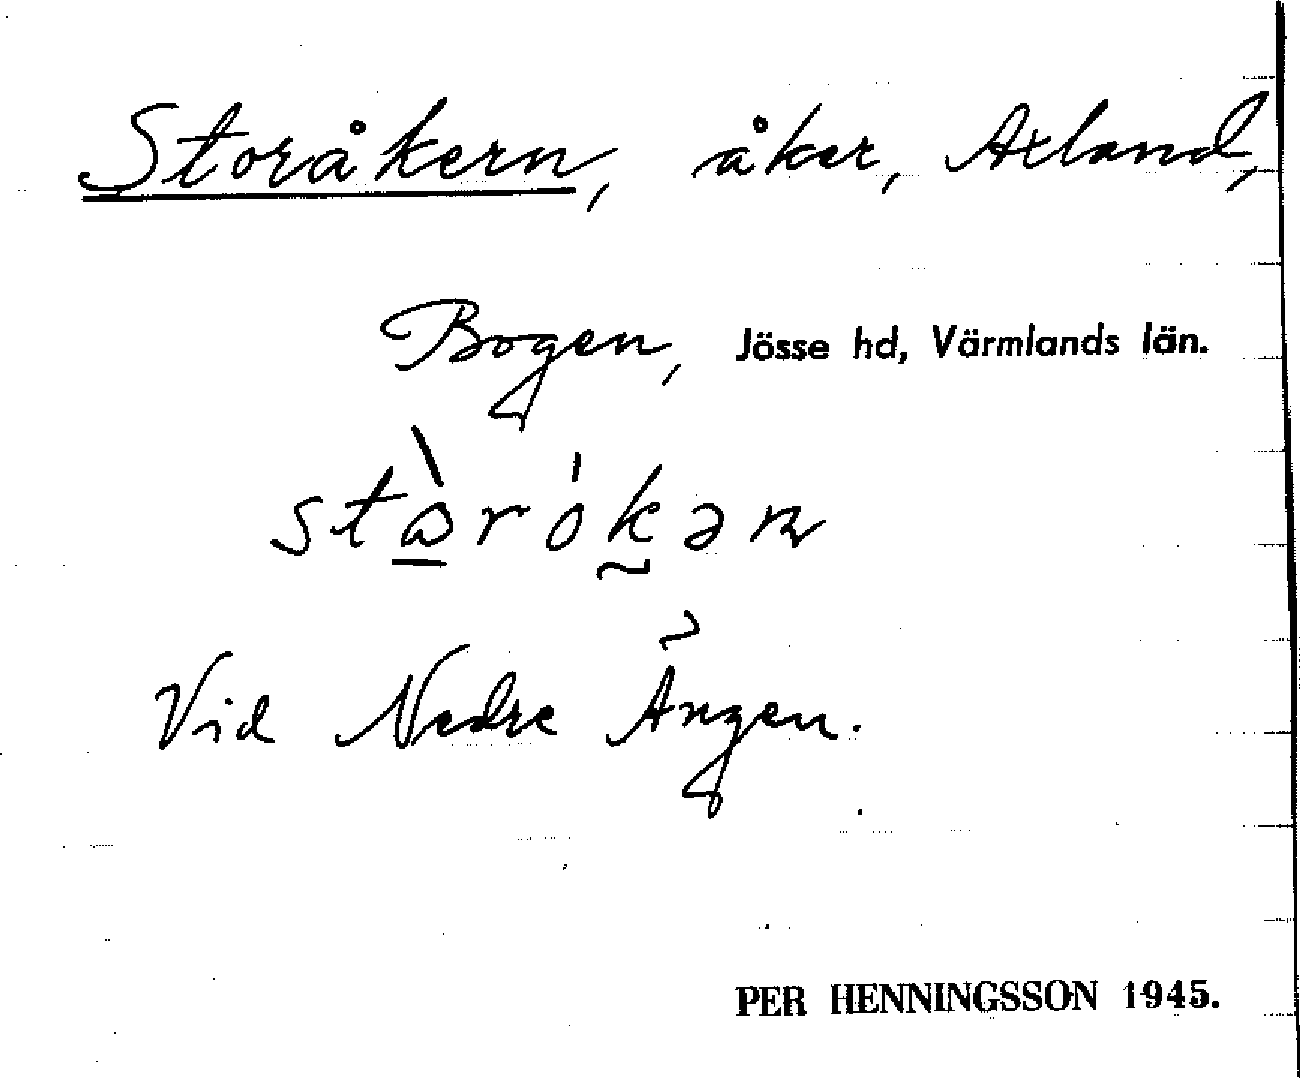 Storåkern, åker, Axland,
Bogen, Jösse hd, Värmlands län.
Vid Nedre Ängen.
PER HENNINGSSON 1945.